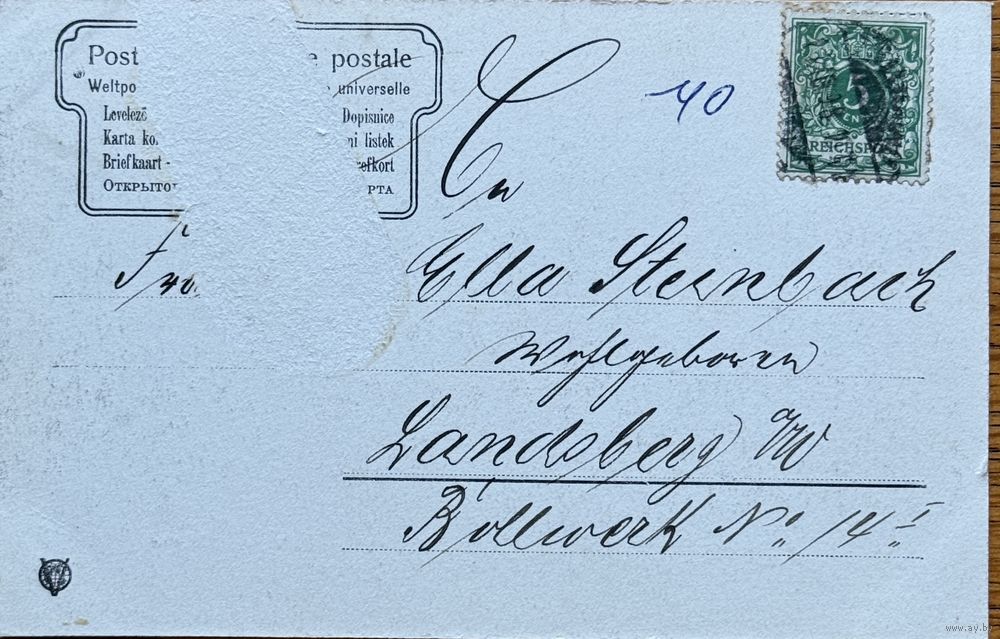 Post e postale
Weltpo universelle
Levelező Dopisnice
Karta ko ni listek
Briefkaart - refkort
Открыто рта
40
5
REICHSPOST
An
Fra
Ella Steinbach
Wohlgeboren
Landsberg a/W
Bollwerk No. 14 I
www.ay.by